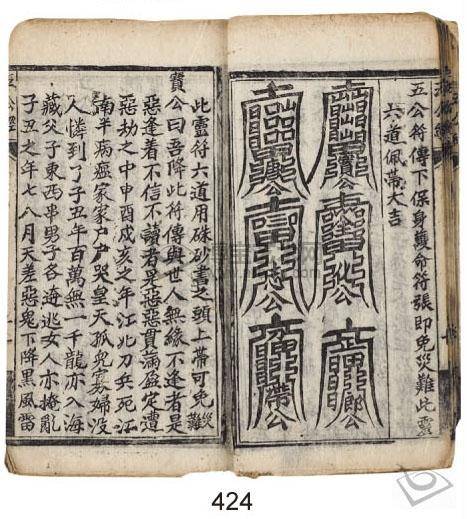 五公符傳下保身護命符張即免災難此靈
六道佩帶大吉
此靈符六道用硃砂書之頭上帶可免災難
寶公曰吾降此符傳與世人無緣不逢者是
惡逢着不信不讀者是惡惡貫滿盈定遭
惡劫之中申酉戌亥之年江北刀兵死江
南半病瘟家家戶戶哭皇天孤兒寡婦沒
人憐到了子丑年百萬無一千龍亦入海
藏父子東西串男子各逃女人亦掩亂
子丑之年七八月天差惡鬼下降黑風雷
424